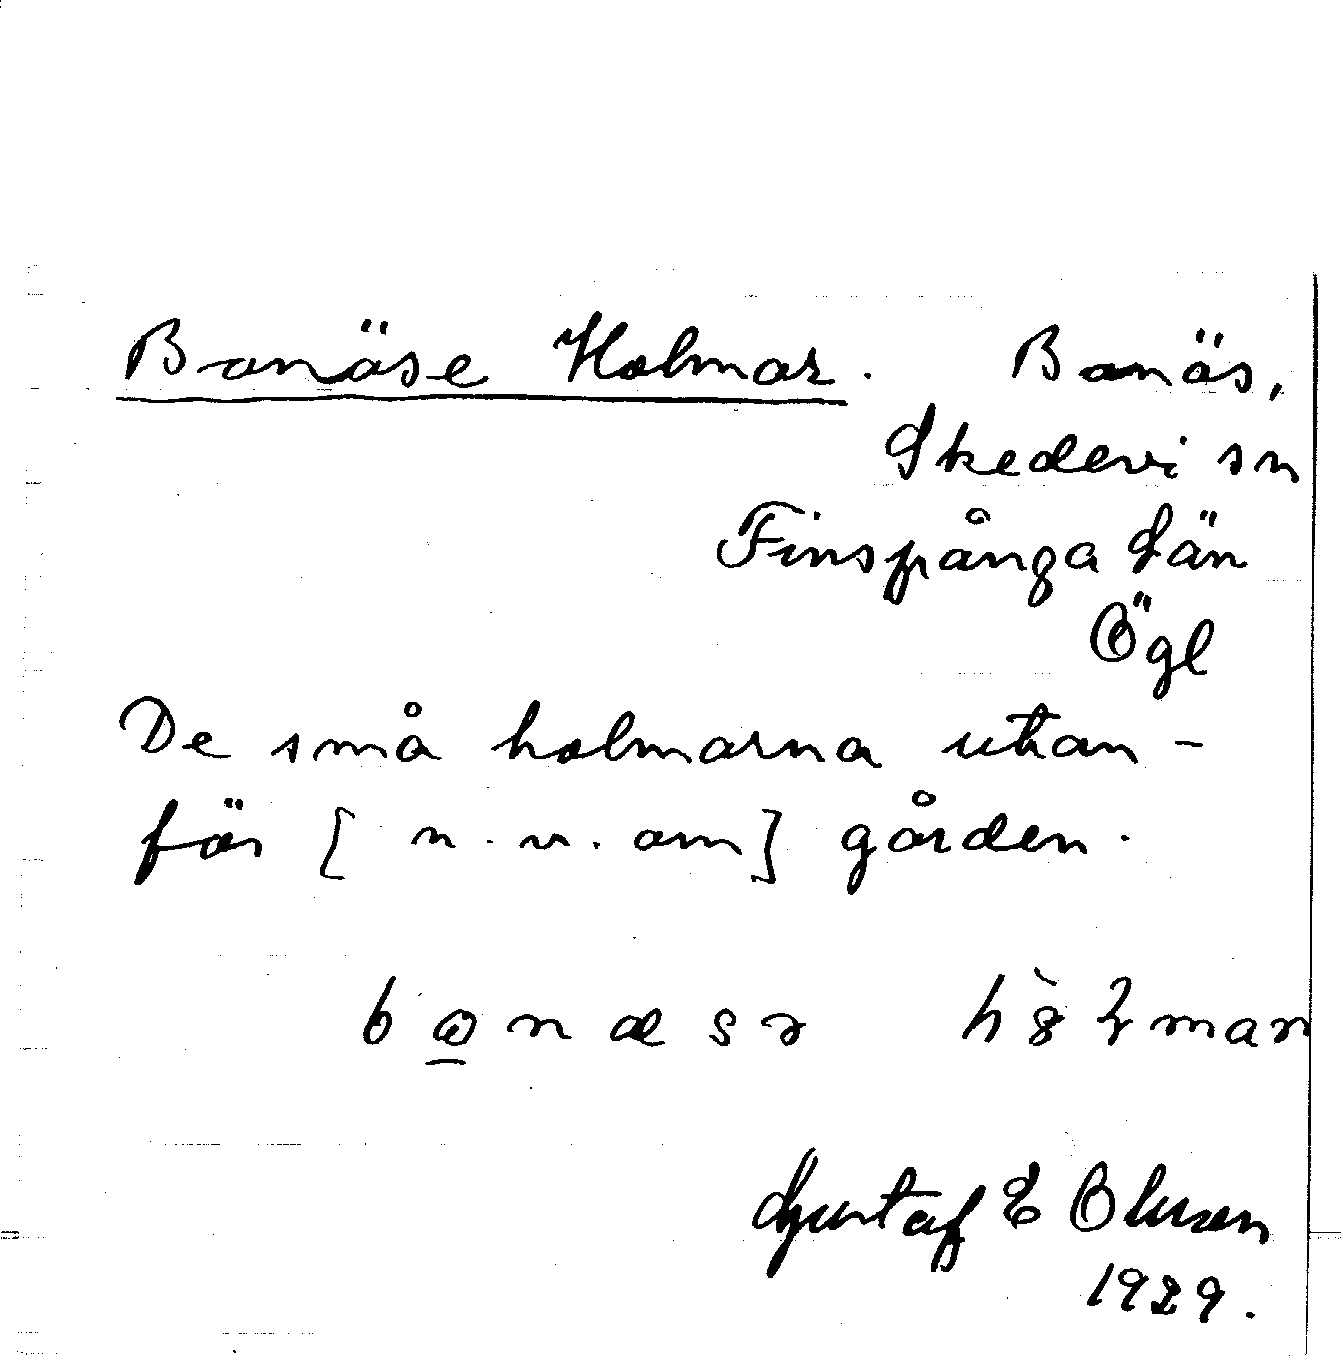 Bonäse Holmar. Bonäs,
Skedevi sn
Finspånga län
Ögl
De små holmarna utan-
för [ n. v. om] gården.
Gustaf E Olsson
1929.